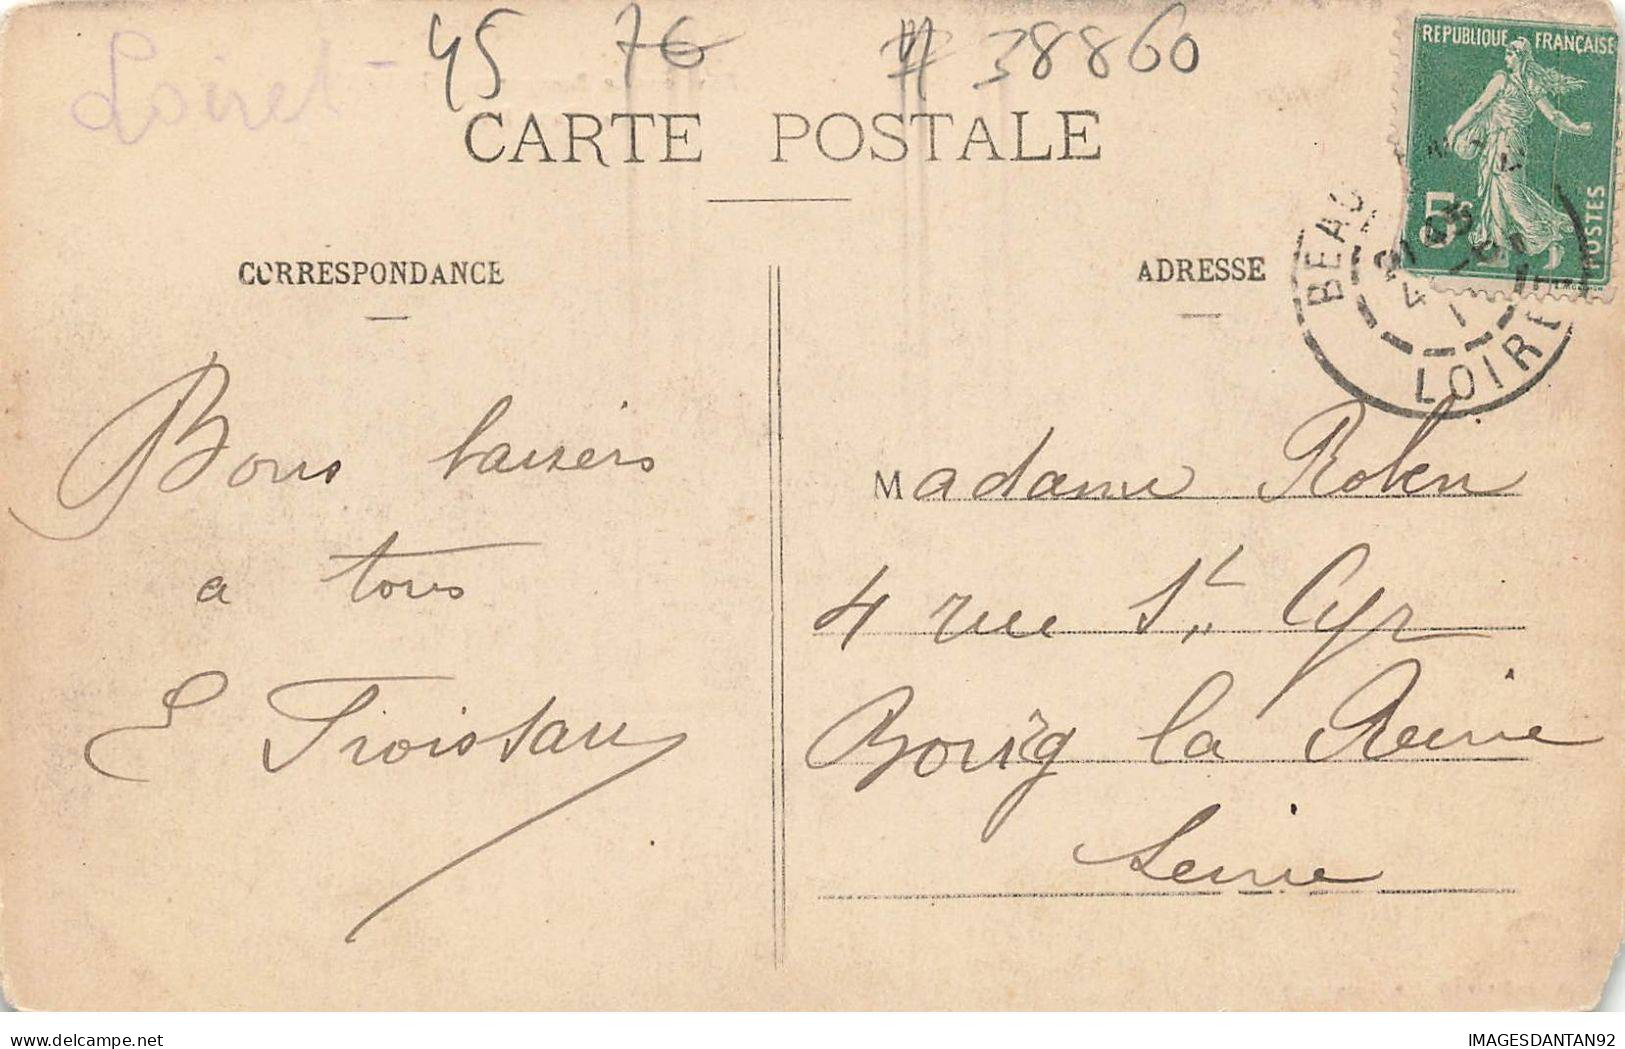 Loiret -
45 76 # 38860
CARTE POSTALE
REPUBLIQUE FRANÇAISE
5c
POSTES
BEAU
LOIRET
CORRESPONDANCE
ADRESSE
Bons baisers
a tous
E Troissau
Madame Robin
4 rue St Cyr
Bourg la Reine
Seine
IMAGESDANTAN92